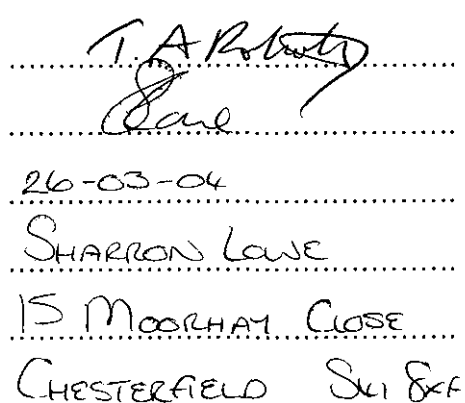 T. A Roberts
26-03-04
SHARRON LOWE
15 MOORHAY CLOSE
CHESTERFIELD